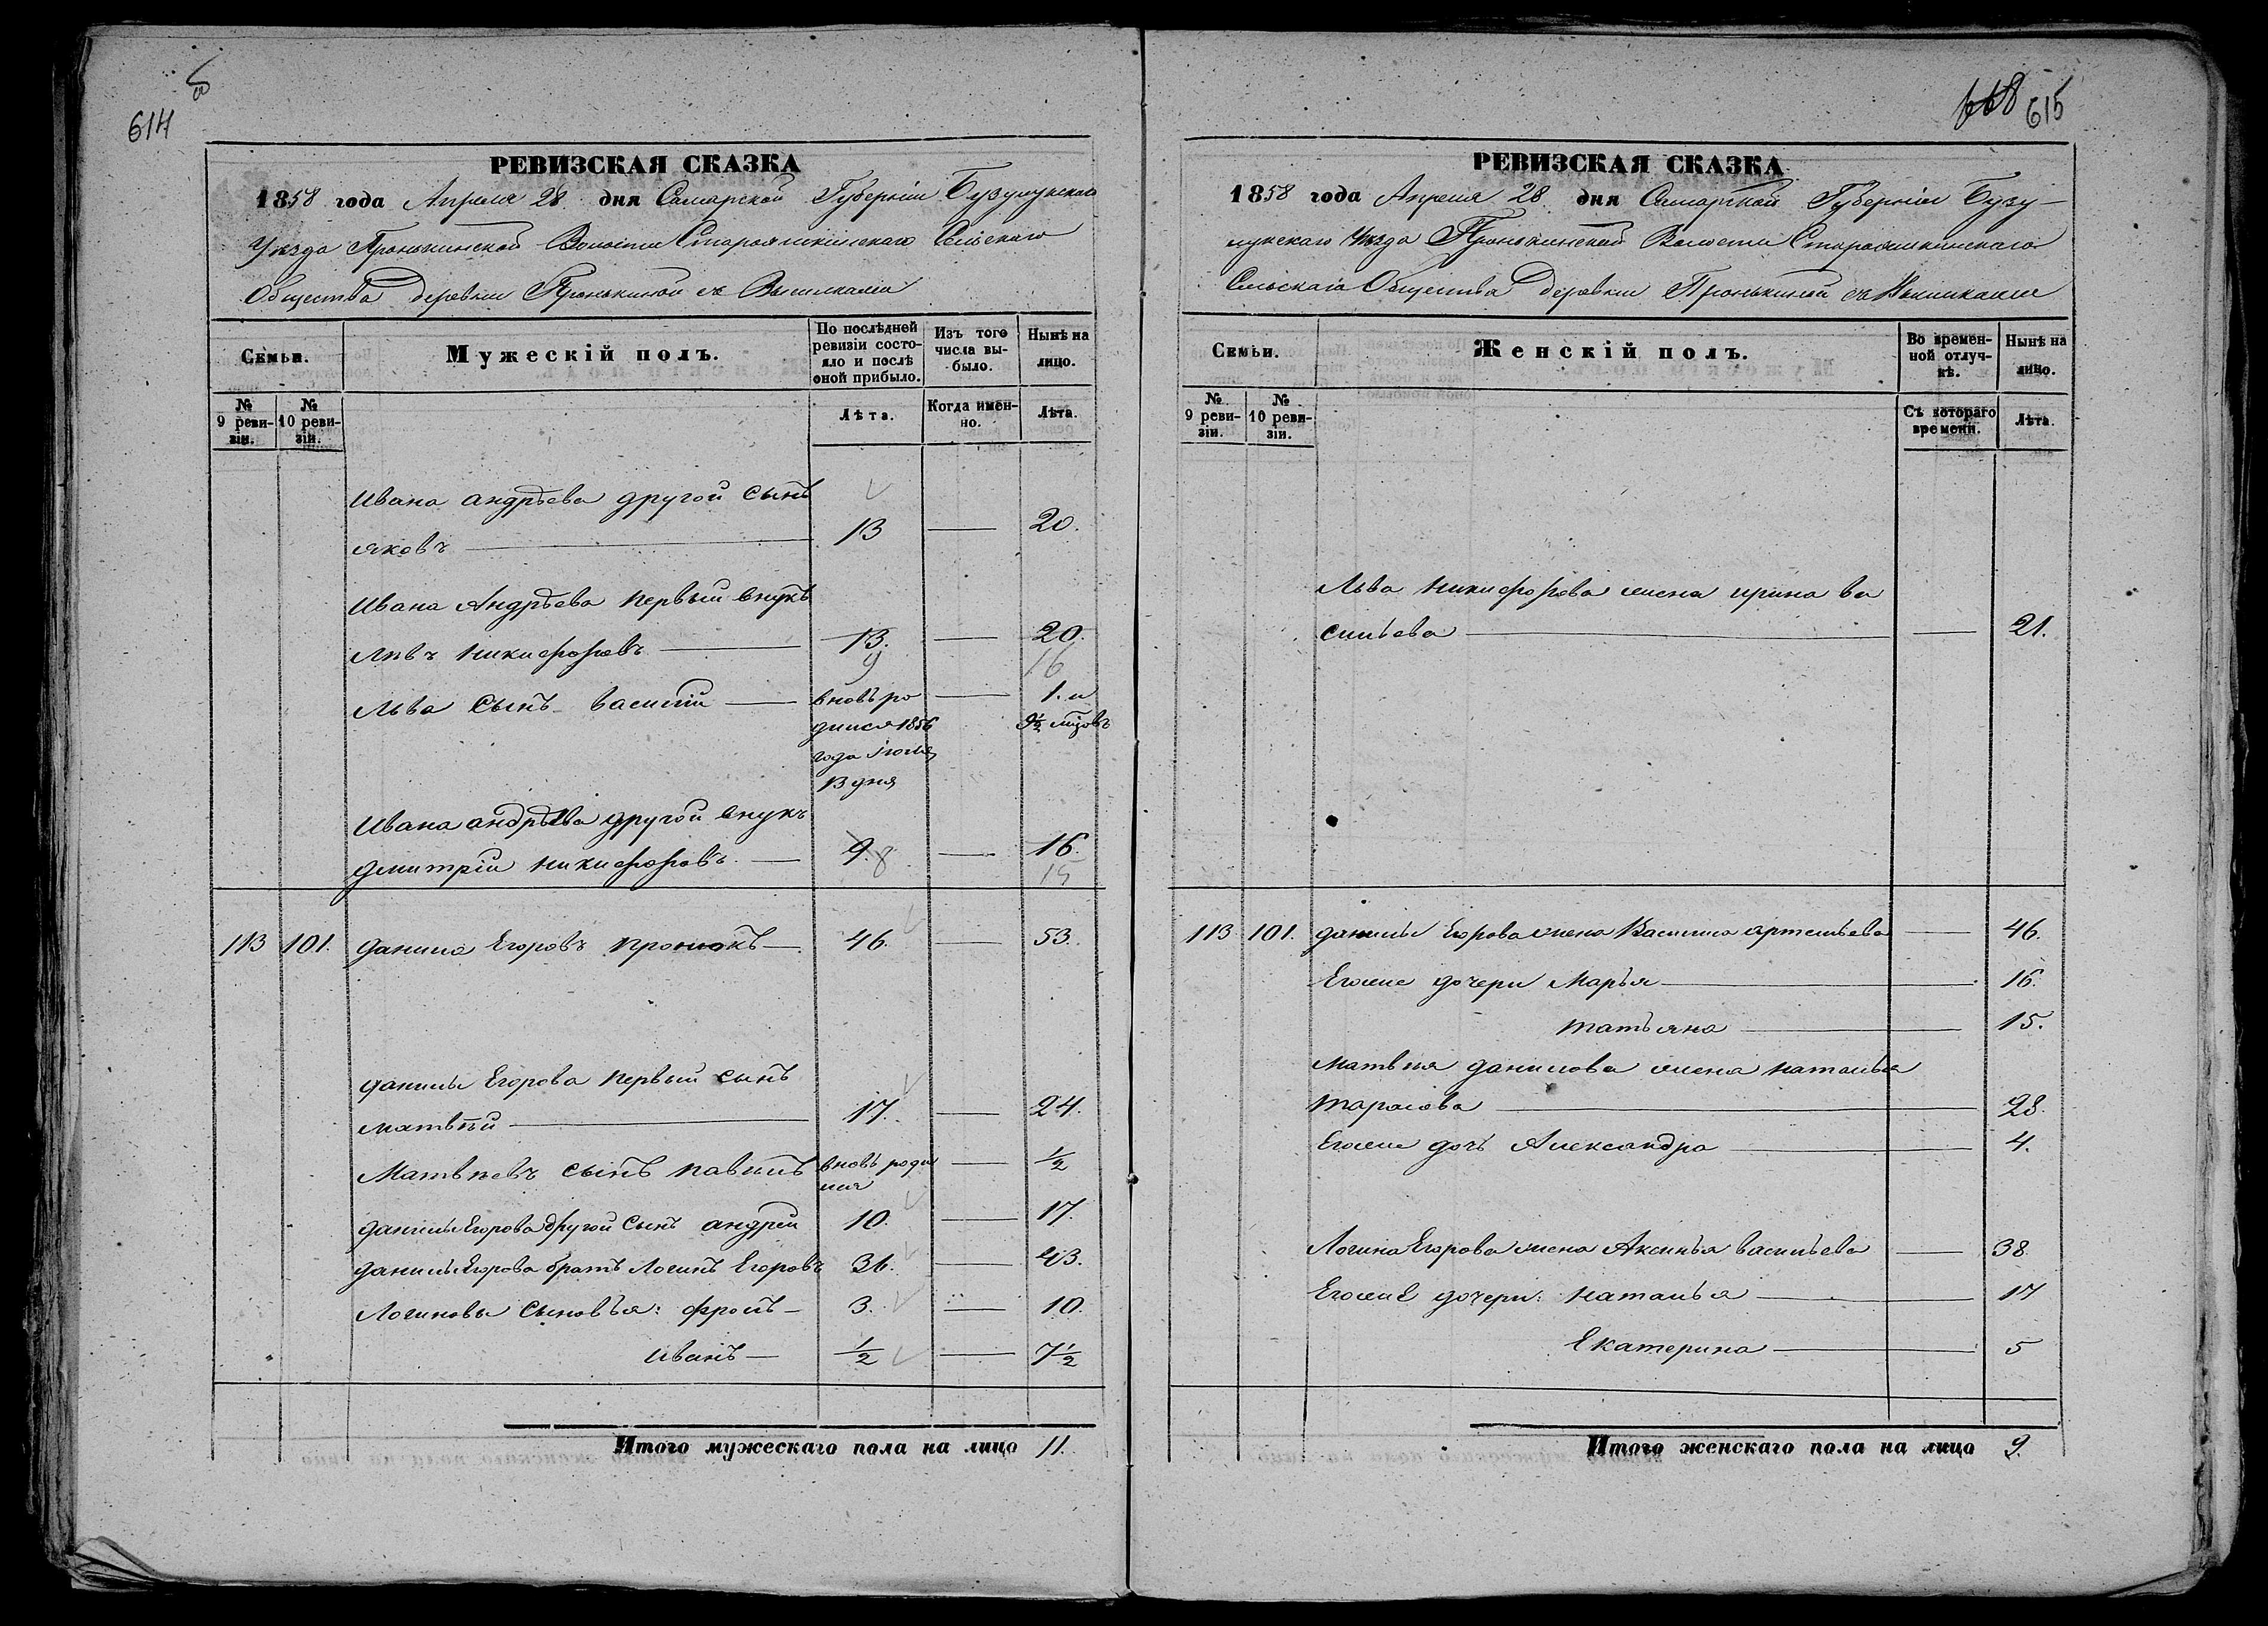 614
РЕВИЗСКАЯ СКАЗКА
1858 года Апреля 28 дня Самарской Губернiи Бузулукскаго
Уѣзда Пронькинской Волости Староякшинскаго Сельскаго
Общества деревни Пронькиной съ Выселками
Семьи.
Мужескiй полъ.
По послѣдней ревизiи состояло и послѣ оной прибыло.
Изъ того числа выбыло.
Нынѣ на лицо.
№ 9 ревизiи.
№ 10 ревизiи.
Лѣта.
Когда именно.
Лѣта.
Ивана андрѣева другой сынъ
яковъ — 13 — 20.
Ивана Андрѣева первый внукъ
Лѣвъ никифоровъ — 13. — 20.
9 16
Льва сынъ василiй — вновь ро — 1. и
дился 1856 9½ мцовъ
года Iюля
13 дня
Ивана андрѣева другой внукъ
дмитрiй никифоровъ. — 9. 8 — 16.
15
113 101. данила Егоровъ пронюкъ — 46. — 53.
данилы Егорова первый сынъ
матвѣй — 17. — 24.
Матвѣевъ сынъ павилъ вновь роди — ½
лся
данилы Егорова другой сынъ андрей 10. — 17.
данилы Егорова братъ Логинъ Егоровъ 36. — 43.
Логиновы сыновья: фролъ — 3. — 10.
иванъ — ½ — 7½
Итого мужескаго пола на лицо 11.
668 615
РЕВИЗСКАЯ СКАЗКА
1858 года Апреля 28 дня Самарской Губернiи Бузу-
лукскаго Уѣзда Пронькинской Волости Староякшинскаго
Сельскаго Общества деревни Пронькиной съ Выселками
Семьи.
Женскiй полъ.
Во временной отлучкѣ.
Нынѣ на лицо.
№ 9 ревизiи.
№ 10 ревизiи.
Съ котораго времени.
Лѣта.
Льва никифорова жена ирина ва
сильева — — 21.
113 101. данилы Егорова жена Василиса артемьева — 46.
Егоже дочери Марья — 16.
татьяна — 15.
матвѣя данилова жена наталья
тарасова — 28.
Егоже дочь Александра — 4.
Логина Егорова жена Аксинья васильева — 38.
Егоже дочери: наталья — 17
Екатерина — 5
Итого женскаго пола на лицо 9.